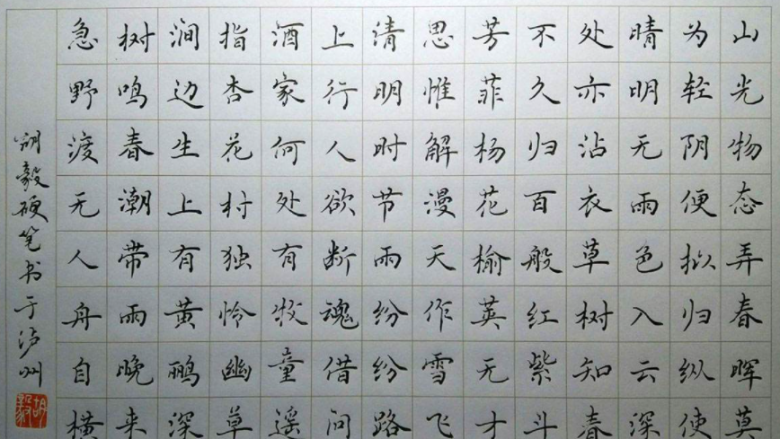 山光物态弄春晖莫
为轻阴便拟归纵使
晴明无雨色入云深
处亦沾衣草树知春
不久归百般红紫斗
芳菲杨花榆荚无才
思惟解漫天作雪飞
清明时节雨纷纷路
上行人欲断魂借问
酒家何处有牧童遥
指杏花村独怜幽草
涧边生上有黄鹂深
树鸣春潮带雨晚来
急野渡无人舟自横
胡毅硬笔书于泸州
胡毅